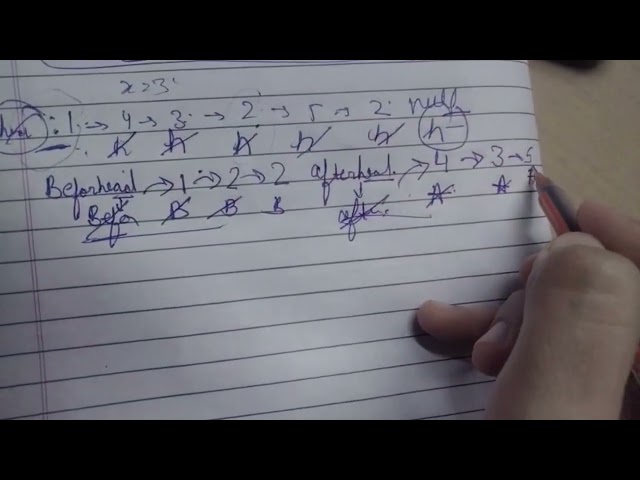 x=3
: 1 → 4 → 3 → 2 → 5 → 2 null
h h h h h h
Beforhead → 1 → 2 → 2 afterhead → 4 → 3 → 5
Befo B B B afte A A A